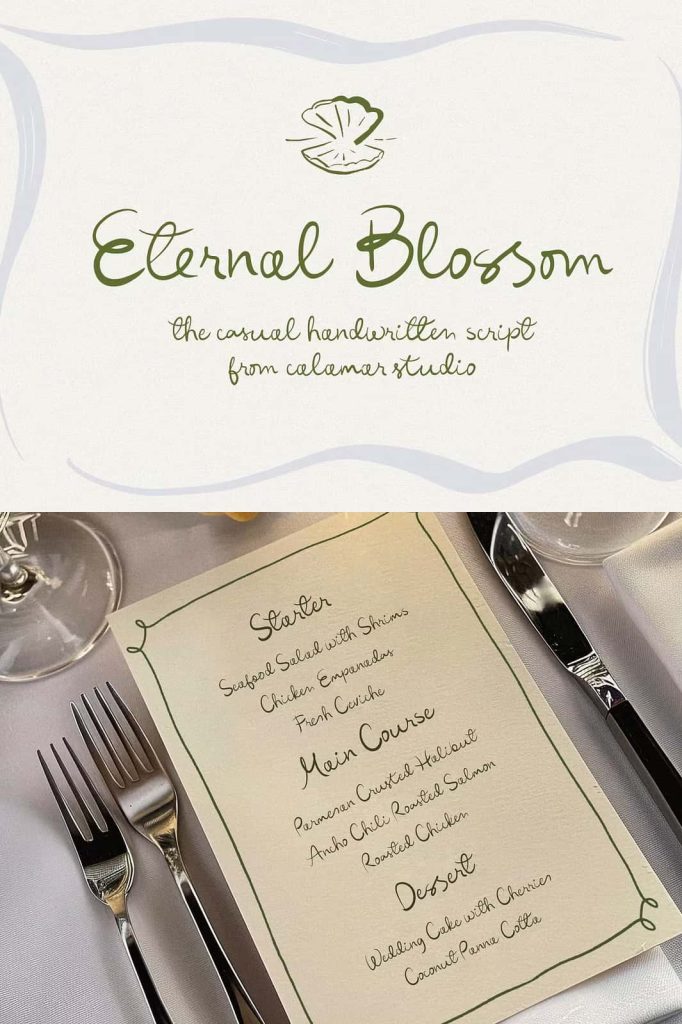 Eternal Blossom
the casual handwritten script
from calamar studio
Starter
Seafood Salad with Shrims
Chicken Empanadas
Fresh Ceviche
Main Course
Parmesan Crusted Halibut
Ancho Chili Roasted Salmon
Roasted Chicken
Dessert
Wedding Cake with Cherries
Coconut Panna Cotta